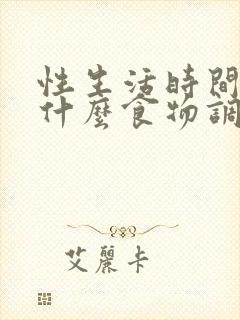 性生活時間
什麼食物調
艾麗卡